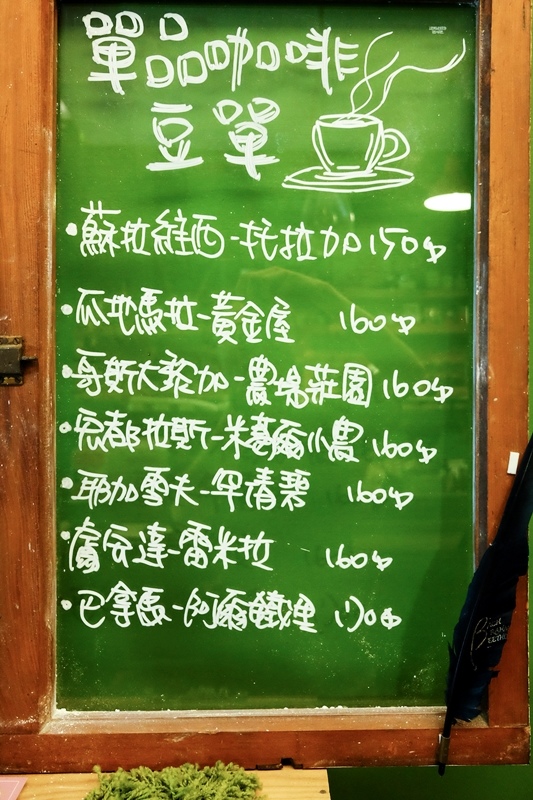 單品咖啡
豆單
•蘇拉維西-托拉加150g
•瓜地馬拉-黃金屋 160g
•哥斯大黎加-農場莊園160g
•宏都拉斯-米塞爾小農160g
•耶加雪夫-罕貝碧 160g
•盧安達-雷米拉 160g
•巴拿馬-阿爾鐵理 170g